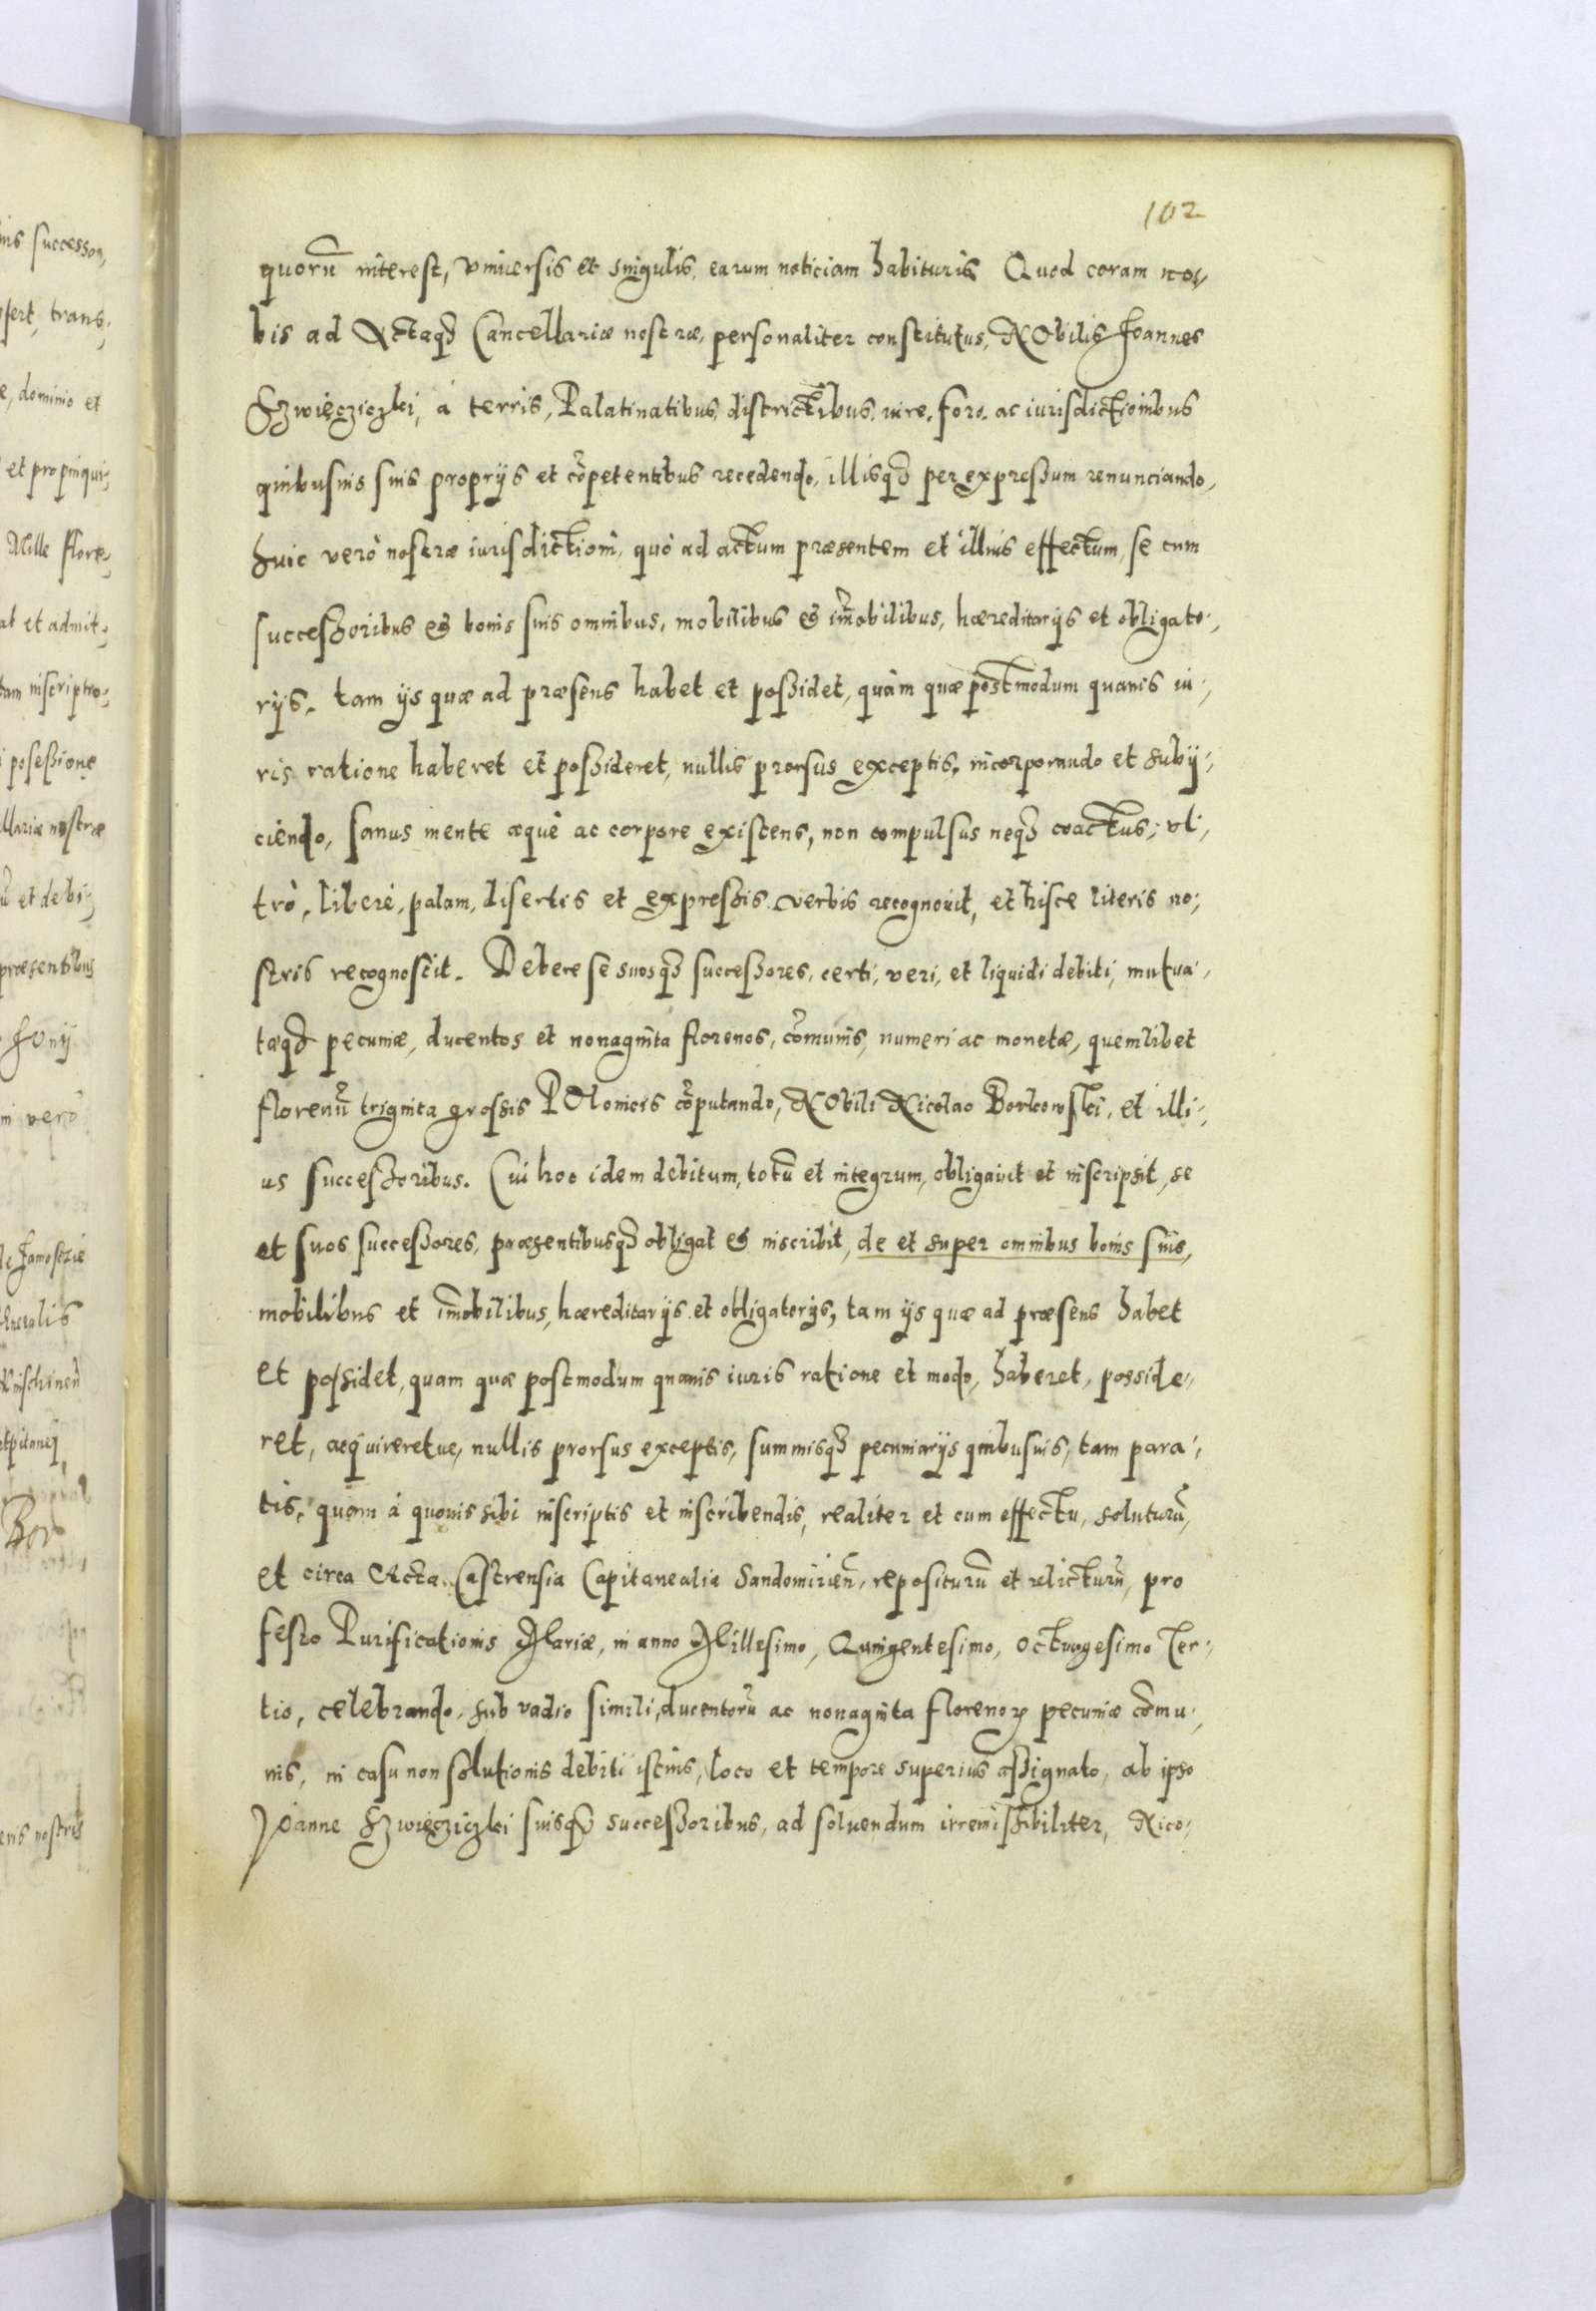 102
quorū interest, vniuersis et singulis, earum noticiam habituris Quod coram no⸗
bis ad Actaq3 Cancellariæ nostræ, personaliter constitutus, NObilis Joannes
Szwięcziczki, á terris, Palatinatibus, districtibus, iure, foro, ac iurisdictionibus
quibusuis suis proprijs et cōpetentibus recedendo, illisq3 per expressum renunciando,
huic verò nostræ iurisdictioni, quò ad actum præsentem et illius effectum, se cum
successoribus & bonis suis omnibus, mobilibus & im̄obilibus, hæreditarijs et obligato⸗
rijs, tam ijs quæ ad præsens habet et possidet, quàm quæ postmodum quauis iu⸗
ris ratione haberet et possideret, nullis prorsus exceptis, incorporando et subij⸗
ciendo, sanus mente æquè ac corpore existens, non compulsus neq3 coactus, vl⸗
trò, liberè, palam, disertis et expressis verbis recognouit, et hisce literis no⸗
stris recognoscit. Debere se suosq3 successores, certi, veri, et liquidi debiti, mutua⸗
tæq3 pecuniæ, ducentos et nonaginta florenos, cōmunis, numeri ac monetæ, quemlibet
florenū triginta grossis POlonicis cōputando, NObili Nicolao Borkowski, et illi⸗
us successoribus. Cui hoc idem debitum, totū et integrum, obligauit et inscripsit, se
et suos successores, præsentibusq3 obligat & inscribit, de et super omnibus bonis suis,
mobilibus et im̄obilibus, hæreditarijs et obligatorijs, tam ijs quæ ad præsens habet
et possidet, quam quæ postmodum quauis iuris ratione et modo, haberet, posside⸗
ret, acquireretue, nullis prorsus exceptis, summisq3 pecuniarijs quibusuis, tam para⸗
tis, quam á quouis sibi inscriptis et inscribendis, realiter et cum effectu, soluturū,
et circa Acta Castrensia Capitanealia Sandomirieñ, repositurū et relicturū, pro
festo Purificationis Mariæ, in anno Millesimo, Quingentesimo, octuagesimo Ter⸗
tio, celebrando, sub vadio simili, ducentorū ac nonaginta florenoꝝ pecuniæ cōmu⸗
nis, in casu non solutionis debiti istius, loco et tempore superius assignato, ab ipso
Joanne Szwięcziczki suisq3 successoribus, ad soluendum irremissibiliter, Nico⸗